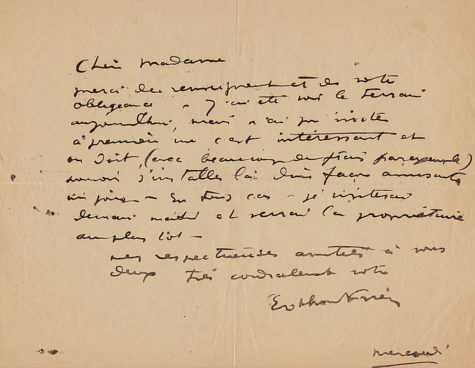 Chère madame
merci du renseignement et de votre
obligeance - J'ai été voir le terrain
aujourd'hui, mais n'ai pu visité
à première vue c'est intéressant et
on doit (avec beaucoup de frais par exemple)
pouvoir s'installer là d'une façon amusante
un jour - En tous cas - je visiterai
demain matin et verrai la propriétaire
au plus tôt -
mes respectueuses amitiés à vous
deux très cordialement votre
mercredi